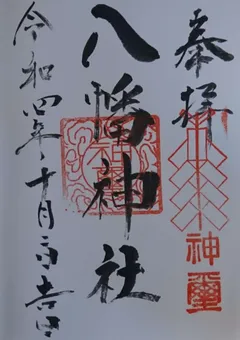 奉拝
神璽
八幡神社
令和四年十月吉日